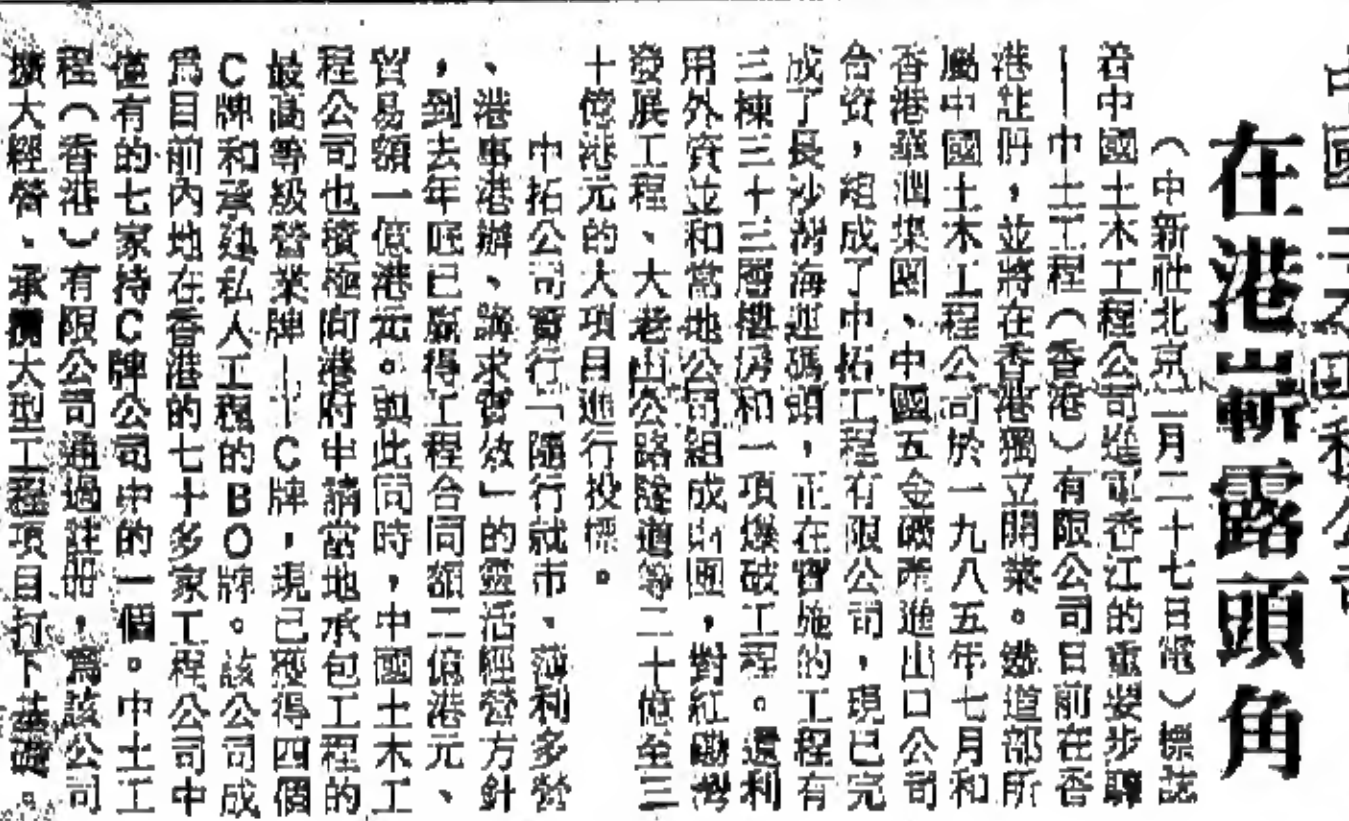 中國土木工程公司
在港嶄露頭角
（中新社北京二月二十七日電）標誌
着中國土木工程公司進軍香江的重要步驟
——中土工程（香港）有限公司日前在香
港註冊，並將在香港獨立開業。鐵道部所
屬中國土木工程公司於一九八五年七月和
香港華潤集團、中國五金礦產進出口公司
合資，組成了中拓工程有限公司，現已完
成了長沙灣海運碼頭，正在實施的工程有
三棟三十三層樓房和一項爆破工程。還利
用外資並和當地公司組成財團，對紅磡灣
發展工程、大老山公路隧道等二十億至三
十億港元的大項目進行投標。
中拓公司實行「隨行就市、薄利多營
、港事港辦、講求實效」的靈活經營方針
，到去年底已贏得工程合同額二億港元、
貿易額一億港元。與此同時，中國土木工
程公司也積極向港府申請當地承包工程的
最高等級營業牌——C牌，現已獲得四個
C牌和承建私人工程的BO牌。該公司成
爲目前內地在香港的七十多家工程公司中
僅有的七家持C牌公司中的一個。中土工
程（香港）有限公司通過註冊，爲該公司
擴大經營、承攬大型工程項目打下基礎。